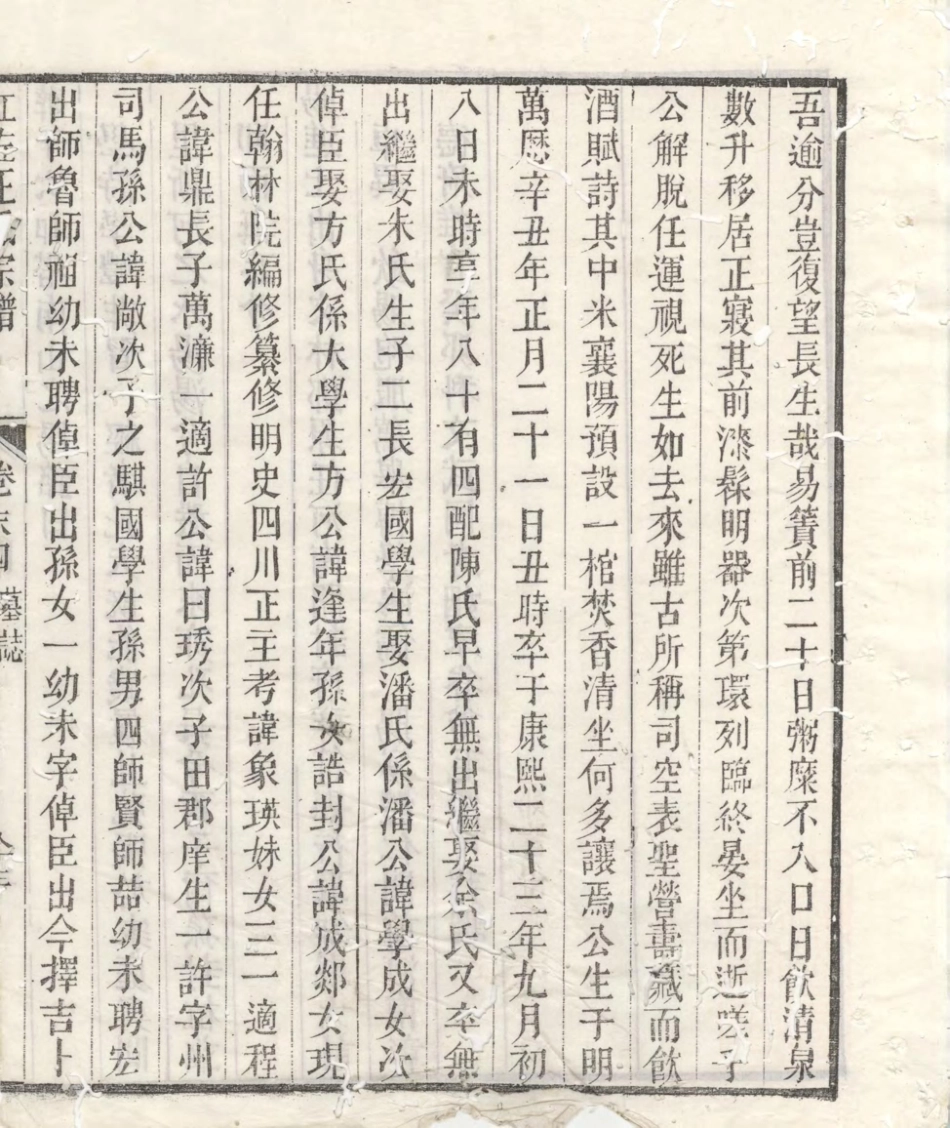 吾逾分豈復望長生哉易簀前二十日粥糜不入口日飲清泉
數升移居正寢其前漆髹明器次第環列臨終晏坐而逝嗟乎
公解脫任運視死生如去來雖古所稱司空表聖營壽藏而飲
酒賦詩其中米襄陽預設一棺焚香清坐何多讓焉公生于明
萬歷辛丑年正月二十一日丑時卒于康熙二十三年九月初
八日未時享年八十有四配陳氏早卒無出繼娶余氏又卒無
出繼娶朱氏生子二長宏國學生娶潘氏係潘公諱學成女次
倬臣娶方氏係大學生方公諱逢年孫女誥封公諱成郯女現
任翰林院編修纂修明史四川正主考諱象瑛妹女三一適程
公諱鼎長子萬濂一適許公諱曰琇次子田郡庠生一許字州
司馬孫公諱敞次子之騏國學生孫男四師賢師喆幼未聘宏
出師魯師祖幼未聘倬臣出孫女一幼未字倬臣出今擇吉卜
宗譜 卷末四 墓誌